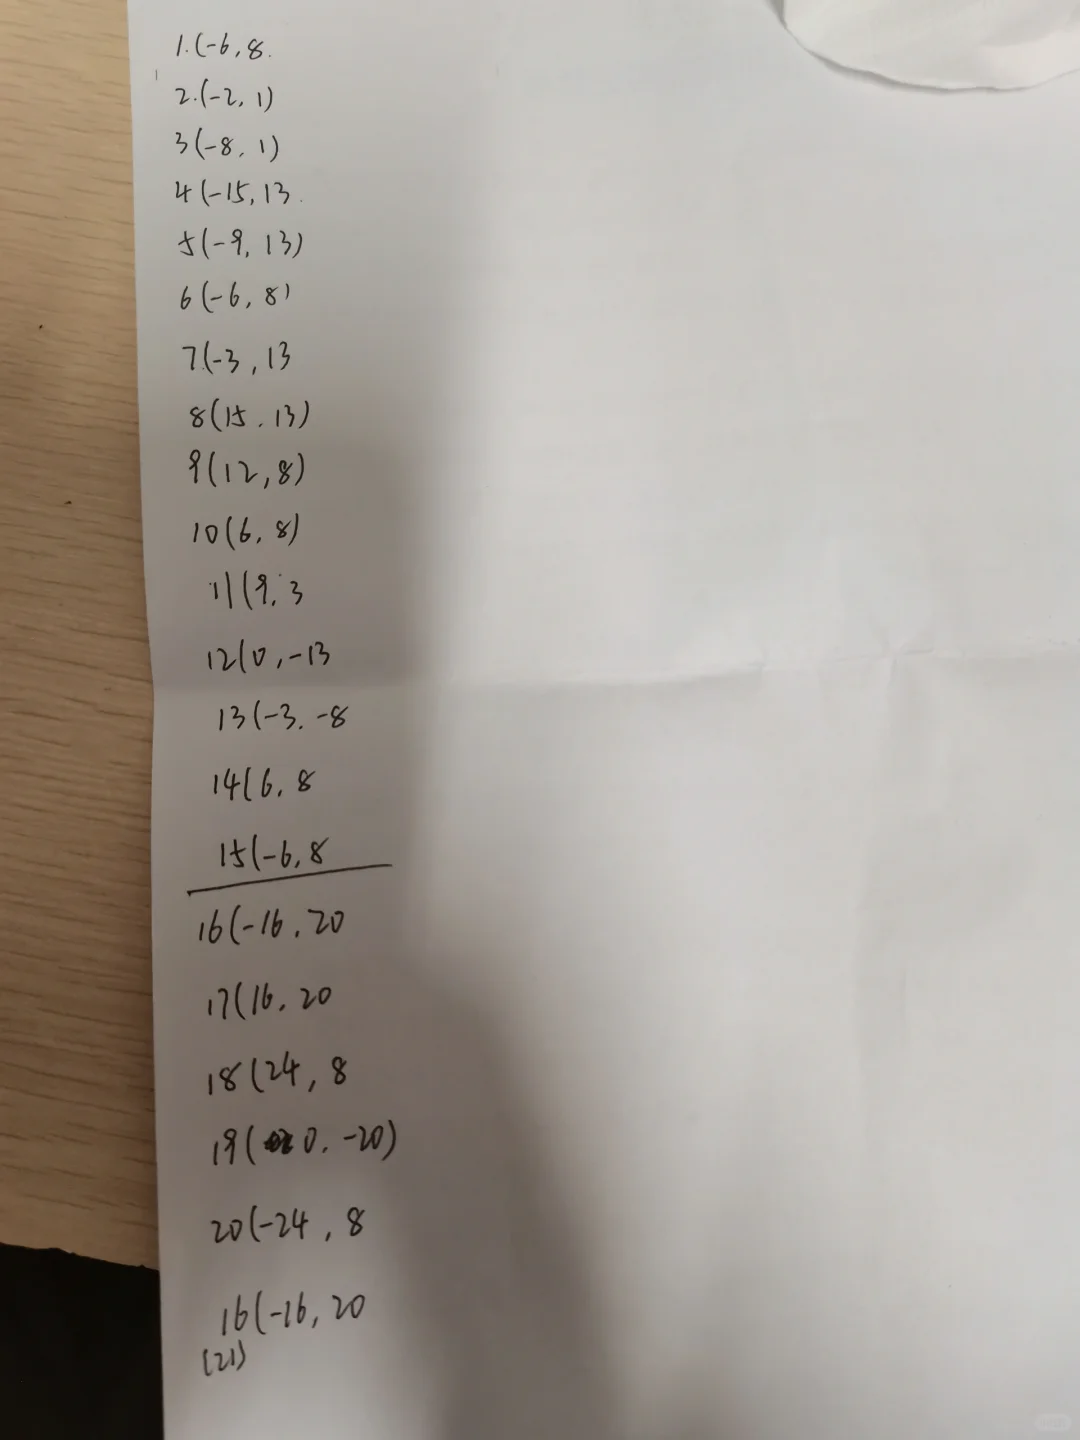 1.(-6,8.
2.(-2,1)
3(-8,1)
4(-15,13.
5(-9,13)
6(-6,8)
7(-3,13
8(15.13)
9(12,8)
10(6,8)
11(9,3
12(0,-13
13(-3.-8
14(6,8
15(-6,8
16(-16.20
17(16.20
18(24,8
19(0.-20)
20(-24,8
16(-16,20
(21)